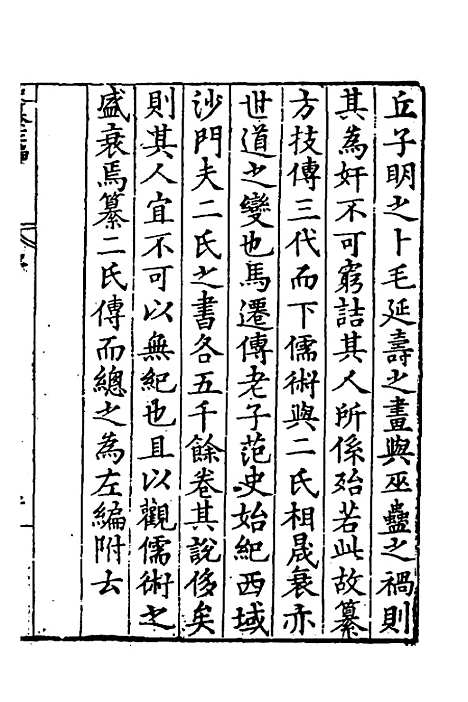 丘子明之卜毛延壽之畫與巫蠱之禍則
其為奸不可窮詰其人所係殆若此故纂
方技傳三代而下儒術與二氏相晟衰亦
世道之變也馬遷傳老子范史始紀西域
沙門夫二氏之書各五千餘卷其說侈矣
則其人宜不可以無紀也且以觀儒術之
盛衰焉纂二氏傳而總之為左編附去